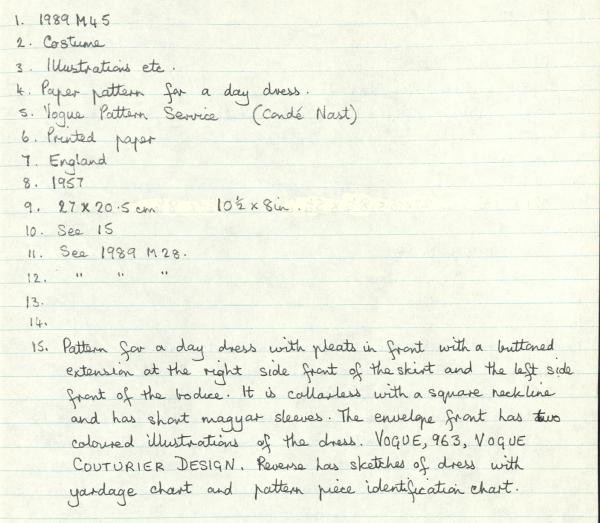 1. 1989 M45
2. Costume
3. Illustrations etc.
4. Paper pattern for a day dress.
5. Vogue Pattern Service (Condé Nast)
6. Printed paper
7. England
8. 1957
9. 27 x 20.5 cm 10½ x 8in.
10. See 15
11. See 1989 M28.
12. " " "
13.
14.
15. Pattern for a day dress with pleats in front with a buttoned
extension at the right side front of the skirt and the left side
front of the bodice. It is collarless with a square neckline
and has short magyar sleeves. The envelope front has two
coloured illustrations of the dress. VOGUE, 963, VOGUE
COUTURIER DESIGN. Reverse has sketches of dress with
yardage chart and pattern piece identification chart.